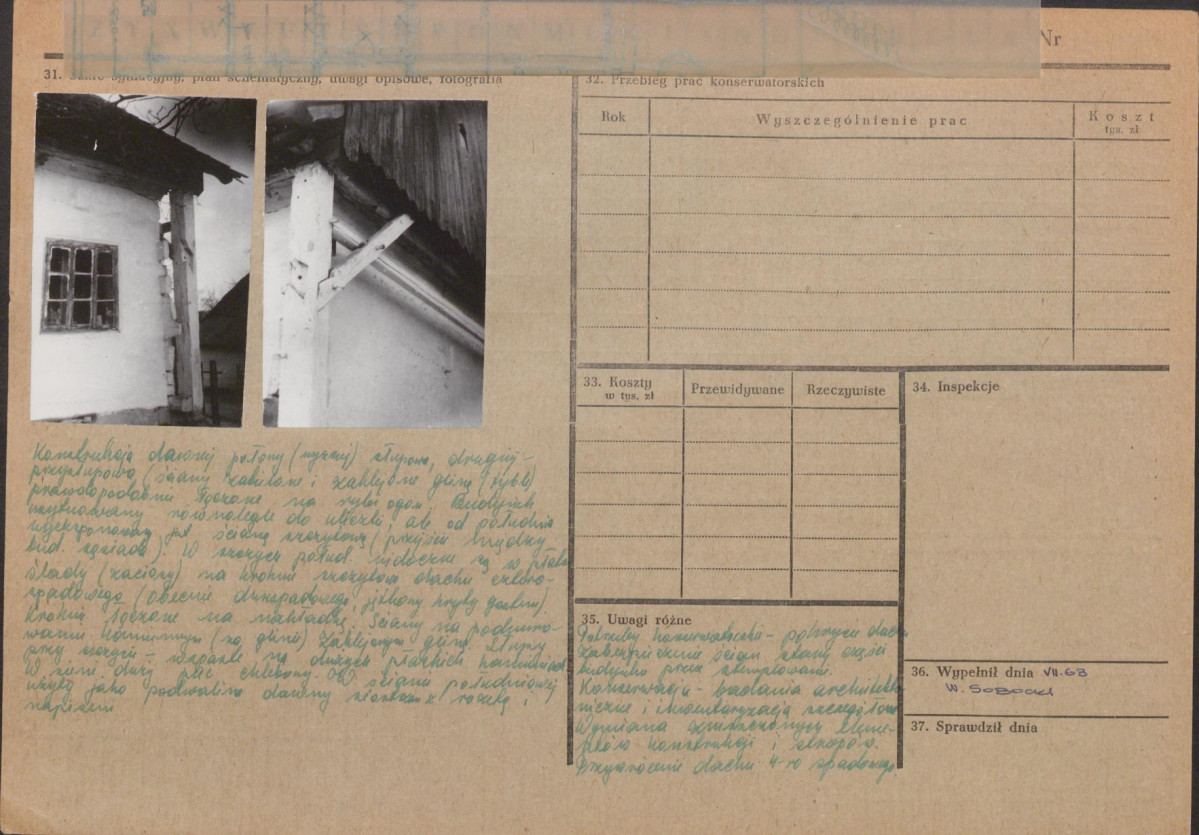 Nr
31. Szkic sytuacyjny, plan schematyczny, uwagi opisowe, fotografia
32. Przebieg prac konserwatorskich
Rok
Wyszczególnienie prac
Koszt
tys. zł
33. Koszty
w tys. zł
Przewidywane
Rzeczywiste
34. Inspekcje
Konstrukcja dawnej połowy (wyższej) słupowa, drugiej –
przysłupowa (ściany zabielone i zaklejone gliną
prawdopodobnie łączone na rybi ogon. Budynek
usytuowany równolegle do uliczki, ale od południa
wyeksponowany jest ścianą szczytową (przejście między
bud. sąsiada). W szczycie połud. widoczne są w
ślady (zaciosy) na krokwie szczytowe dachu cztero-
spadowego (obecnie dwuspadowego,
krokwie łączone na nakładkę. Ściany na podmuro-
waniu kamiennym (na glinie) zaklejonym gliną. Słupy
przy szczycie – wsparte na dużych płaskich kamieniach
W sieni duży piec chlebowy. W ścianie południowej
użyto jako podwalinę dawny z rozetą i
napisem
35. Uwagi różne
Potrzeby konserwatorskie – pokrycie dachu
zabezpieczenie ścian starej części
budynku przez stemplowanie.
Konserwacja – badania architekto-
niczne i inwentaryzacja szczegółowa
Wymiana zniszczonych eleme-
ntów konstrukcji i stropów.
Przywrócenie dachu 4-ro spadowego
36. Wypełnił dnia VII.63
37. Sprawdził dnia